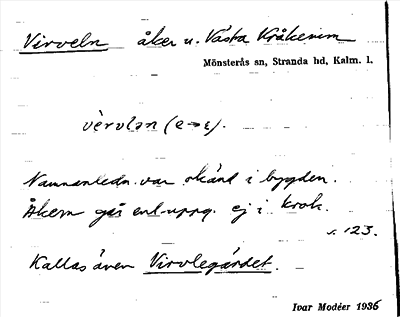 Virveln åker u. Västra Kråkerum
Mönsterås sn, Stranda hd, Kalm. l.
vèrvlən (e→ε).
Namnanledn. var okänd i bygden.
Åkern går enl. uppg. ej i krok.
s. 123.
Kallas även Virvlegärdet.
Ivar Modéer 1936